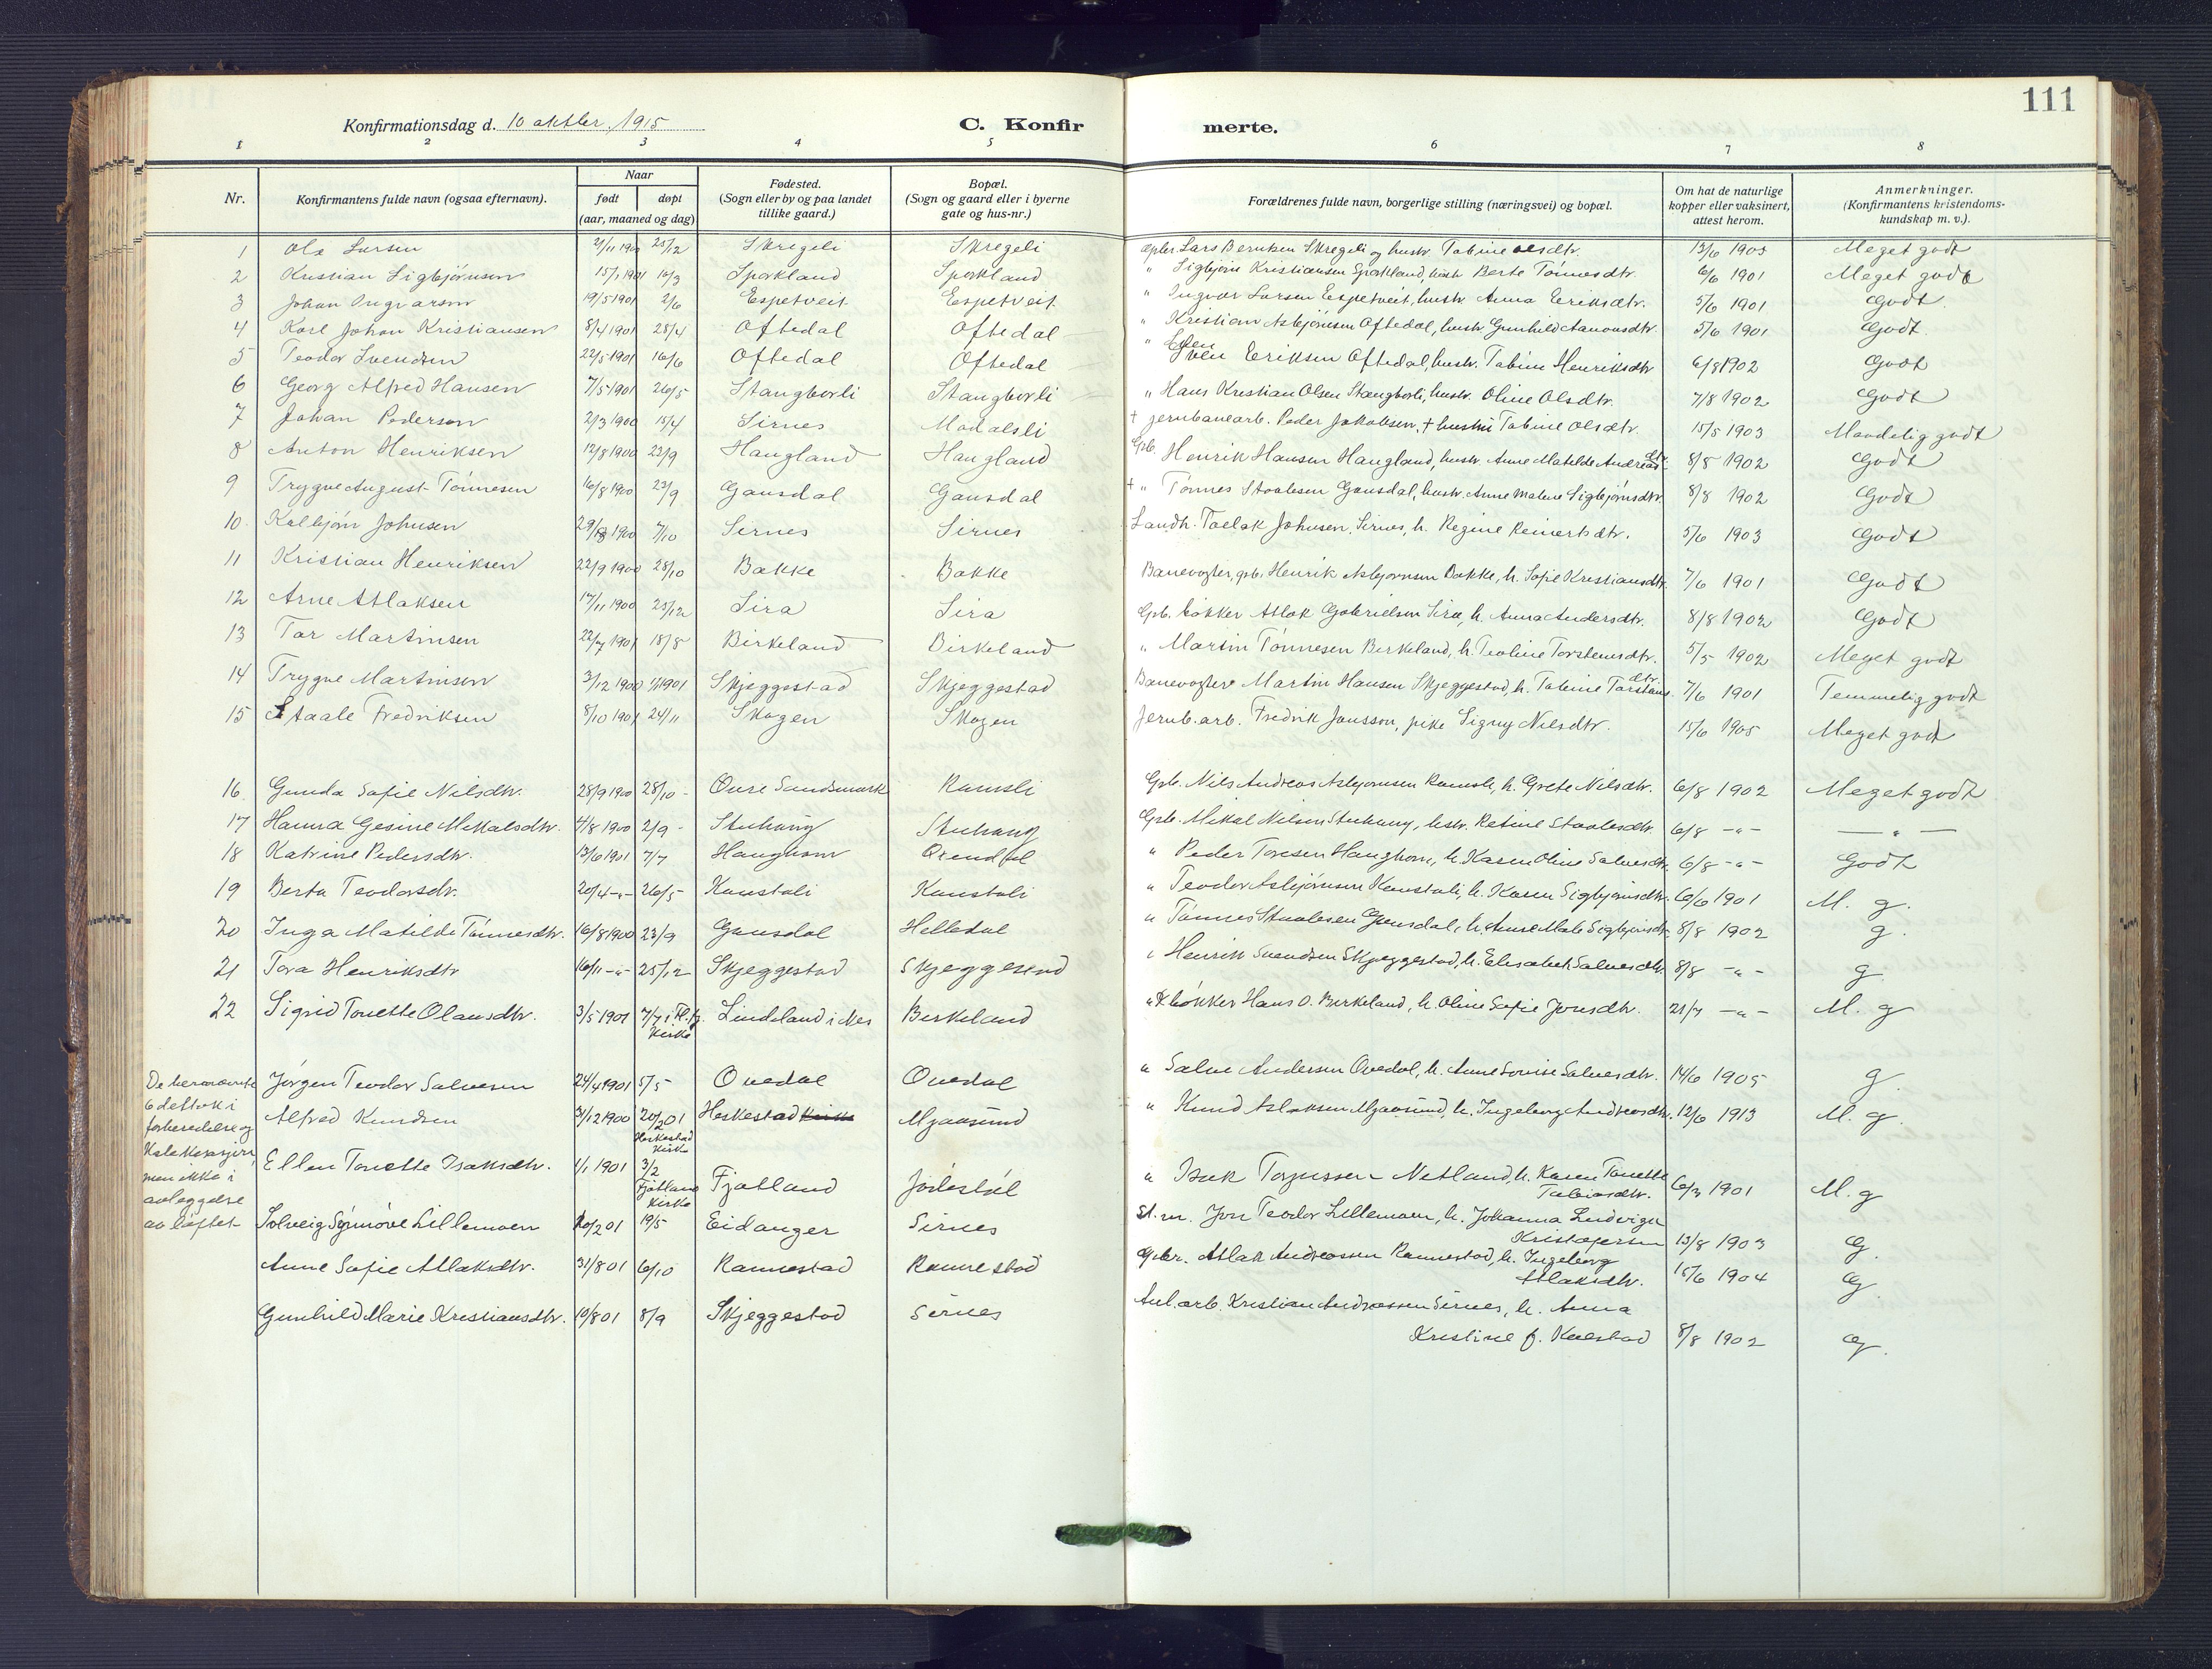 111
Konfirmationsdag d. 10 oktber 1915
C. Konfir merte.
1 2 3 4 5 6 7 8
Nr. Konfirmantens fulde navn (ogsaa efternavn). Naar født døpt (aar, maaned og dag) Fødested. (Sogn eller by og paa landet tillike gaard.) Bopæl. (Sogn og gaard eller i byerne gate og hus-nr.) Forældrenes fulde navn, borgerlige stilling (næringsvei) og bopæl. Om hat de naturlige kopper eller vaksinert, attest herom. Anmerkninger. (Konfirmantens kristendoms-kundskap m. v.).
1 Ola Larsen 2/11 1900 25/12 Skregeli Skregeli Lars Berntsen Skregeli og hustr. Tabine Olsdtr. 13/6 1903 Meget godt
2 Kristian Sigbjörnsen 15/1 1901 10/3 Sporkland Sporkland " Sigbjörn Kristiansen Sporkland, hustr. Berte Tönnesdtr. 6/6 1901 Meget godt
3 Johan Ingvarsen 19/5 1901 2/6 Espetveit Espetveit " Ingvar Larsen Espetveit, hustr. Anna Eriksdtr. 5/6 1901 Godt.
4 Karl Johan Kristiansen 8/4 1901 28/4 Oftedal Oftedal " Kristian Asbjörnsen Oftedal, hustr. Gunhild Aanonsdtr. 5/6 1901 Godt.
5 Teodor Svendsen 22/5 1901 16/6 Oftedal Oftedal " Sven Eriksen Oftedal, hustr. Tabine Henriksdtr 6/8 1902 Godt
6 Georg Alfred Hansen 7/5 1901 26/5 Stangborli Stangborli " Hans Kristian Olsen Stangborli, hustr. Oline Olsdtr. 7/8 1902 Godt
7 Johan Pedersen 2/3 1900 15/4 Sirnes Modalsli † jernbanearb. Peder Jakobsen, † hustru Tabine Olsdtr. 15/5 1903 Maadelig godt
8 Anton Henriksen 12/8 1900 23/9 Haugland Haugland Grb. Henrik Hansen Haugland, hustr. Anne Matilde Andreasdtr 8/8 1902 Godt
9 Trygve August Tönnesen 16/8 1900 23/9 Gausdal Gausdal † " Tönnes Staalesen Gausdal, hustr. Anne Malene Sigbjörnsdtr. 8/8 1902 Godt
10 Kolbjörn Johnsen 29/8 1900 7/10 Sirnes Sirnes Landh. Taelak Johnsen, Sirnes, h. Regine Reinertsdtr. 5/6 1903 Godt
11 Kristian Henriksen 22/9 1900 28/10 Bakke Bakke Banevogter, grb. Henrik Asbjornsen Bakke, h. Sofie Kristiansdtr. 7/6 1901 Godt
12 Arne Atlaksen 17/11 1900 25/12 Sira Sira Grb. bökker Atlak Gabrielsen Sira, h. Anna Andersdtr. 8/8 1902 Godt
13 Tor Martinsen 22/7 1901 18/8 Birkeland Birkeland " Martin Tönnesen Birkeland, h. Teoline Torstensdtr. 5/5 1902 Meget godt
14 Trygve Martinsen 3/12 1900 1/1 1901 Skjeggestad Skjeggestad Banevogter Martin Hansen Skjeggestad, h. Tabine Torstensdtr. 7/6 1901 Temmelig godt
15 Staale Fredriksen 8/10 1901 24/11 Skogen Skogen Jernb. arb. Fredrik Jonsson, pike Signy Nilsdtr. 15/6 1905 Meget godt
16 Gunda Sofie Nilsdtr. 28/9 1900 28/10 - Öure Sandsmark Ramsli Grb. Nils Andreas Asbjornsen Ramsli, h. Grete Nilsdtr. 6/8 1902 Meget godt
17 Hanna Gesine Mikalsdtr. 4/8 1900 2/9 - Stuhaug Stuhaug Grb. Mikal Nilsen Stuhaug, hstr. Retine Staalesdtr. 6/8 -"- -"-
18 Katrine Pedersdtr. 13/6 1901 7/7 Haughom " Peder Toresen Haughom, h. Karen Oline Salvesdtr. 6/8 -"- Godt
19 Berta Teodorsdtr. 20/4 -"- 26/5 Kanstøli Kanstøli " Teodor Asbjörnsen Kanstøli, h. Karen Sigbjörnsdtr. 6/6 1901 M. g.
20 Inga Matilde Tönnesdtr. 16/8 1900 23/9 Gausdal Helledal " Tönnes Staalesen Gausdal, h. Anne Male Sigbjörnsdtr. 8/8 1902 g.
21 Tora Henriksdtr 16/11 -"- 25/12 Skjeggestad Skjeggestad " Henrik Svendsen Skjeggestad, h. Elisabet Salvesdtr. 8/8 -"- g
22 Sigrid Tonette Olausdtr. 3/5 1901 7/7 i Fl. kirke Lindeland i Nes Birkeland " bökker Hans O. Birkeland, h. Oline Sofie Jonsdtr. 21/7 -"- M. g
De hernævnte 6 deltok i forberedelse og katekisasjon, men ikke i avleggelse av löftet
Jörgen Teodor Salvesen 24/4 1901 5/5 Ovedal Ovedal " Salve Andersen Ovedal, h. Anne Lovise Salvesdtr. 14/6 1905 g
Alfred Knudsen 31/12 1900 20/2 01 Heskestad kirke Heskestad Mjaasund " Knud Aslaksen Mjaasund, h. Ingeborg Andreasdtr. 12/6 1913 M. g.
Ellen Tonette Isaksdtr. 1/1 1901 3/2 Fjotland kirke Fjotland Jödestöl " Isak Torjussen Netland, h. Karen Tonette Tobiasdtr. 6/7 1901 M. g
Solveig Synnöve Lillemoen 10/2 01 19/5 Eidanger Sirnes St. m. Jon Teodor Lillemoen, h. Johanna Ludviga Kristofersen 13/8 1903 G.
Anne Sofie Atlaksdtr. 31/8 01 6/10 Rannestad Rannestad Gbr. Atlak Andreassen Rannestad, h. Ingeborg Atlaksdtr. 15/6 1904 G.
Gunhild Marie Kristiansdtr. 10/8 01 8/9 Skjeggestad Sirnes Anl. arb. Kristian Andreassen Sirnes, h. Anna Kristine f. Kvelstad 8/8 1902 G.